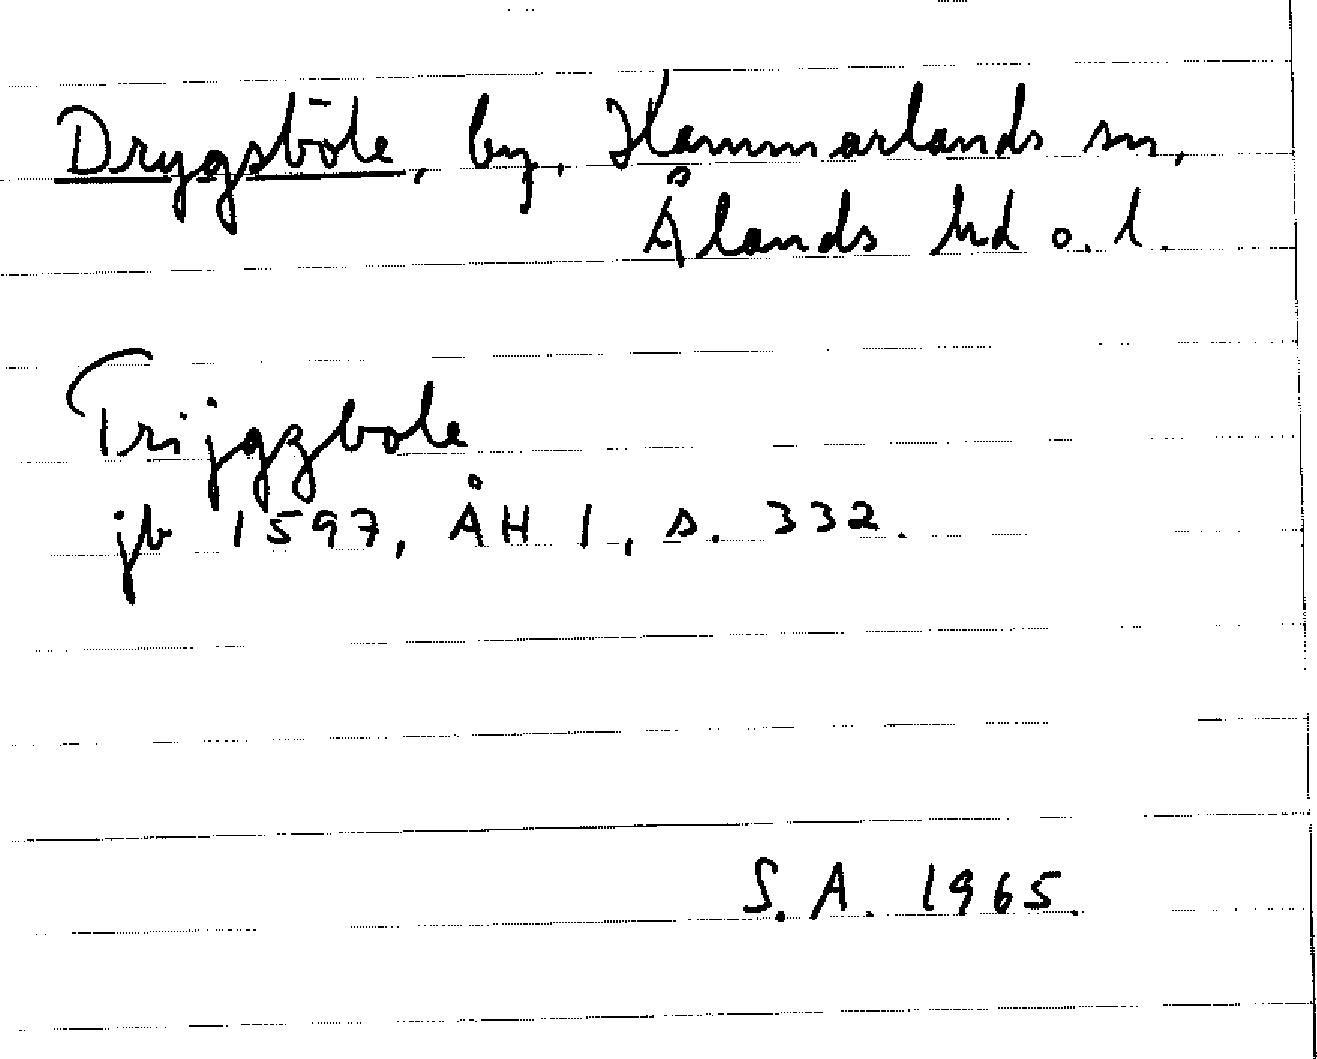 Drygsböle, by, Hammarlands sn,
Ålands hd o. l.
Trijgzbole
jb 1597, ÅH 1, s. 332.
S.A. 1965.